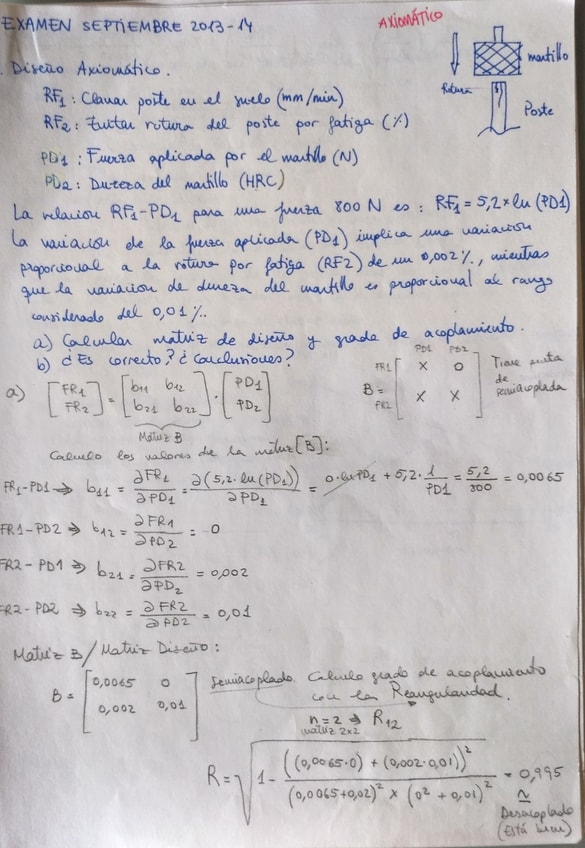 EXAMEN SEPTIEMBRE 2013-14
AXIOMÁTICO
. Diseño Axiomático.
martillo
Rotura
Poste
RF1: Clavar poste en el suelo (mm/min)
RF2: Evitar rotura del poste por fatiga (%)
PD1: Fuerza aplicada por el martillo (N)
PD2: Dureza del martillo (HRC)
La relacion RF1-PD1 para una fuerza 800 N es: RF1 = 5,2 * ln (PD1)
La variación de la fuerza aplicada (PD1) implica una variación
proporcional a la rotura por fatiga (RF2) de un 0,002 %, mientras
que la variacion de dureza del martillo es proporcional al rango
considerado del 0,01 %.
a) Calcular matriz de diseño y grado de acoplamiento.
b) ¿Es correcto? ¿Conclusiones?
a) [FR1 FR2] = [b11 b12 b21 b22] · [PD1 PD2]
Matriz B
PD1 PD2
FR1 X O
B =
FR2 X X
Tiene pinta
de
semiacoplada
Calculo los valores de la matriz [B]:
FR1-PD1 ⇒ b11 = ∂FR1/∂PD1 = ∂(5,2·ln(PD1))/∂PD1 = 0·lnPD1 + 5,2·1/PD1 = 5,2/800 = 0,0065
FR1-PD2 ⇒ b12 = ∂FR1/∂PD2 = 0
FR2-PD1 ⇒ b21 = ∂FR2/∂PD2 = 0,002
FR2-PD2 ⇒ b22 = ∂FR2/∂PD2 = 0,01
Matriz B / Matriz Diseño:
B = [0,0065 0 0,002 0,01]
Semiacoplado. Calculo grado de acoplamiento
con la Reangularidad.
n=2 ⇒ R12
matriz 2x2
R = √(1 - ((0,0065·0) + (0,002·0,01))² / ((0,0065+0,02)² × (0² + 0,01)²)) = 0,995
≃
Desacoplado
(Está bien)